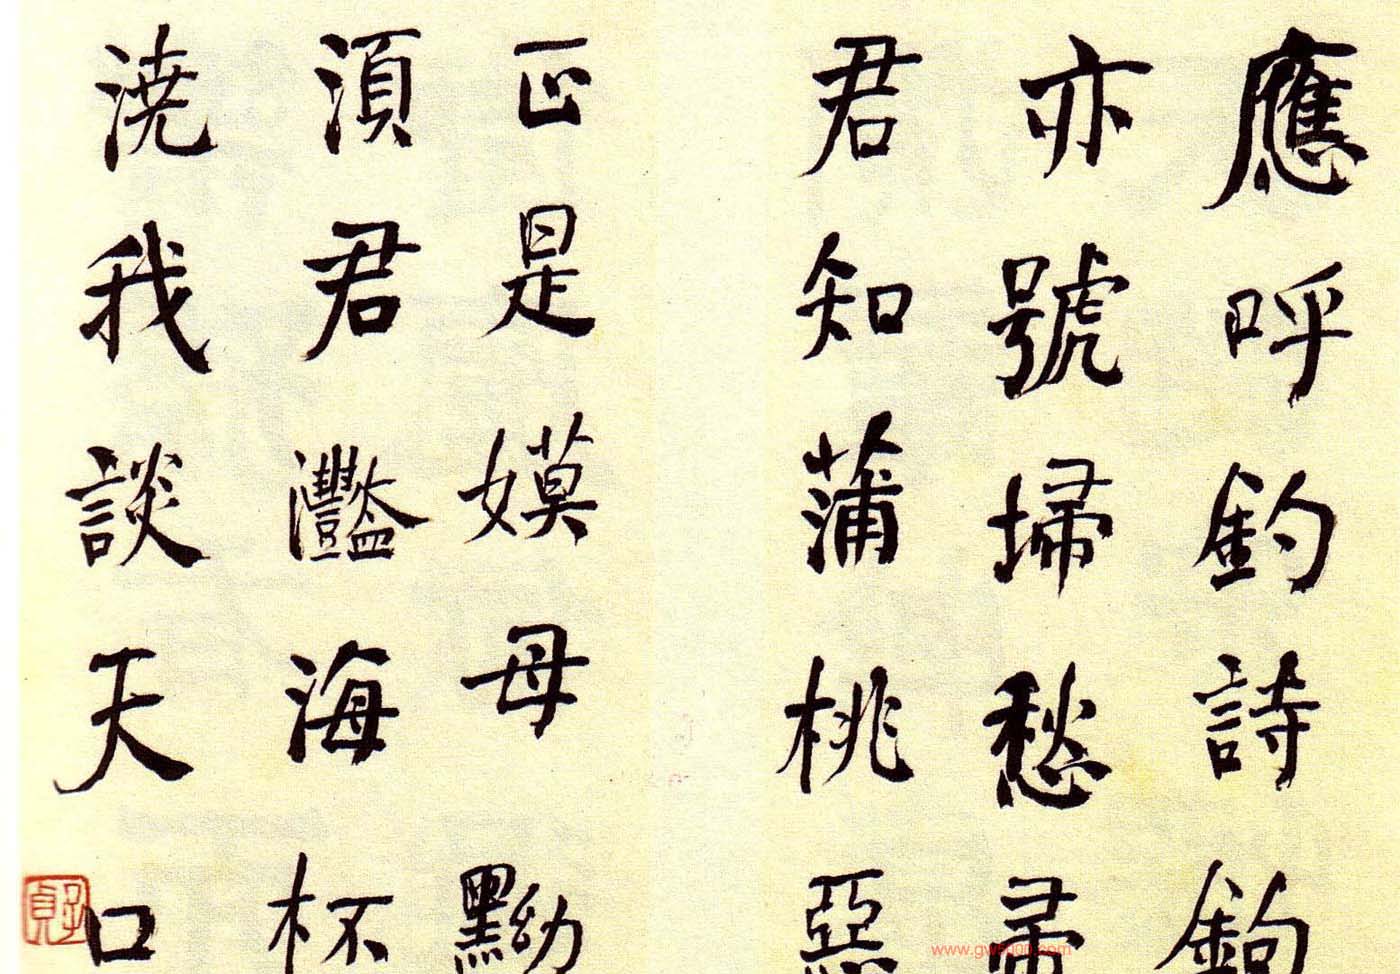 應呼釣詩鉤
亦號掃愁帚
君知蒲桃惡
正是嫫母黝
須君灩海杯
澆我談天口
子貞
www.gw5000.com